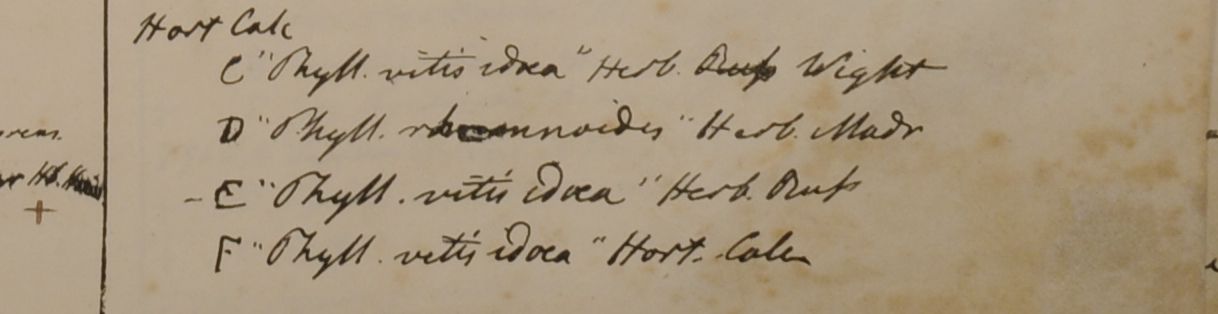 Hort Calc
C "Phyll. vitis idaea" Herb. Russ Wight
D "Phyll. rhamnoides" Herb. Madr
rens.
- E "Phyll. vitis idaea" Herb. Russ
Hb.
F "Phyll. vitis idaea" Hort. Calc